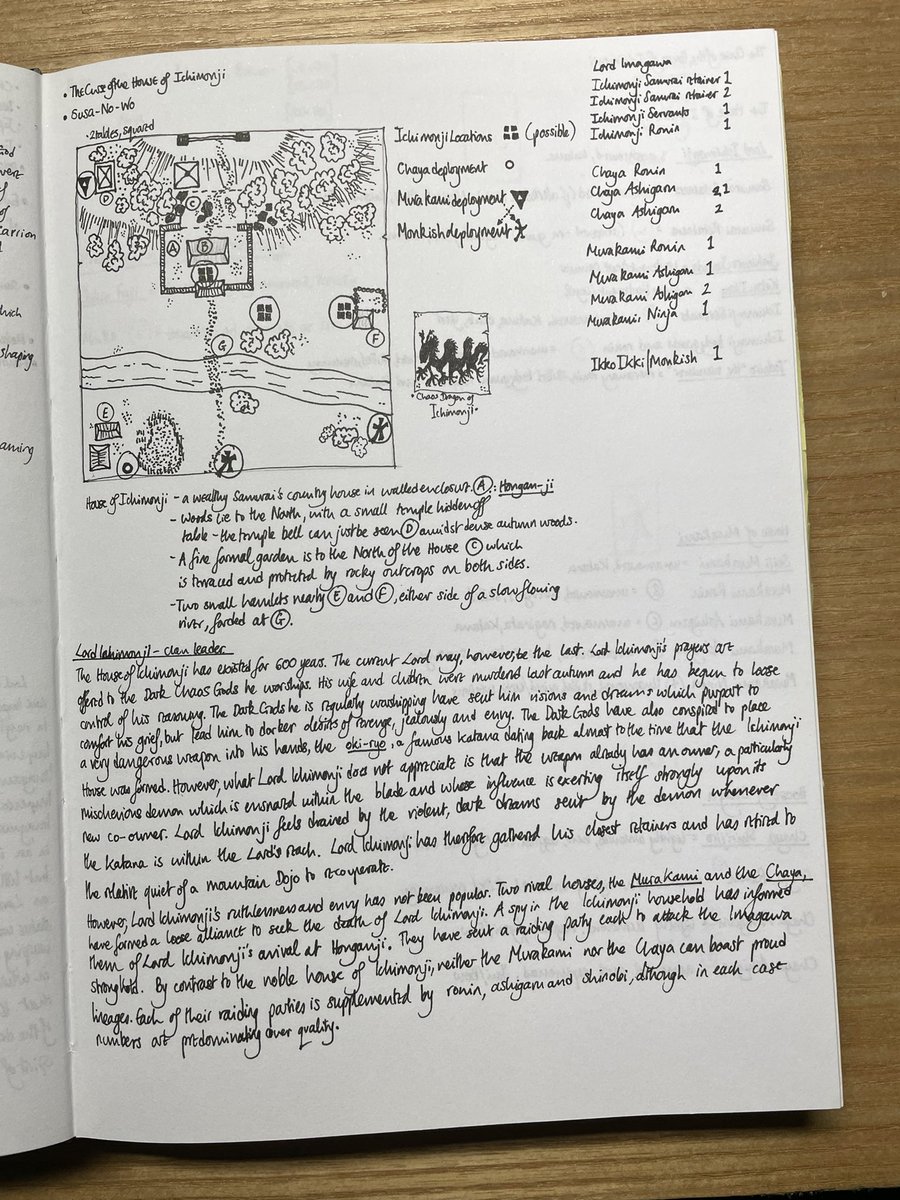 • The Curse of the House of Ichimonji
• Susa-No-Wo
• 2 tables, squared
Ichimonji Locations (possible)
Chaya deployment
Murakami deployment
Monkish deployment
Lord Imagawa
Ichimonji Samurai retainer 1
Ichimonji Samurai retainer 2
Ichimonji Servants 1
Ichimonji Ronin 1
Chaya Ronin 1
Chaya Ashigaru 1
Chaya Ashigaru 2
Murakami Ronin 1
Murakami Ashigaru 1
Murakami Ashigaru 2
Murakami Ninja 1
Ikko Ikki/Monkish 1
D
C
A
B
G
F
E
• Chaos Dragon of
Ichimonji •
House of Ichimonji - a wealthy Samurai's country house in walled enclosure (A): Hongan-ji
- Woods lie to the North, with a small temple hidden off
table - the temple bell can just be seen (D) amidst dense autumn woods.
- A fine formal garden is to the North of the House (C) which
is terraced and protected by rocky outcrops on both sides.
- Two small hamlets nearby (E) and (F), either side of a slow flowing
river, forded at (G).
Lord Ichimonji - clan leader
The House of Ichimonji has existed for 600 years. The current Lord may, however, be the last. Lord Ichimonji's prayers are
offered to the Dark Chaos Gods he worships. His wife and children were murdered last autumn and he has begun to loose
control of his reasoning. The Dark Gods he is regularly worshipping have sent him visions and dreams which purport to
comfort his grief, but lead him to darker debts of revenge, jealously and envy. The Dark Gods have also conspired to place
a very dangerous weapon into his hands, the oki-ryo, a famous katana dating back almost to the time that the Ichimonji
House was formed. However, what Lord Ichimonji does not appreciate is that the weapon already has an owner, a particularly
mischevious demon which is ensnared within the blade and whose influence is exerting itself strongly upon its
new co-owner. Lord Ichimonji feels drained by the violent, dark dreams sent by the demon whenever
the katana is within the Lord's reach. Lord Ichimonji has therefore gathered his closest retainers and has retired to
the relative quiet of a mountain Dojo to recuperate.
However, Lord Ichimonji's ruthlessness and envy has not been popular. Two rival houses, the Murakami and the Chaya,
have formed a loose alliance to seek the death of Lord Ichimonji. A spy in the Ichimonji household has informed
them of Lord Ichimonji's arrival at Honganji. They have sent a raiding party each to attack the Imagawa
stronghold. By contrast to the noble house of Ichimonji, neither the Murakami nor the Chaya can boast proud
lineages. Each of their raiding parties is supplemented by ronin, ashigaru and shinobi, although in each case
numbers are predominating over quality.